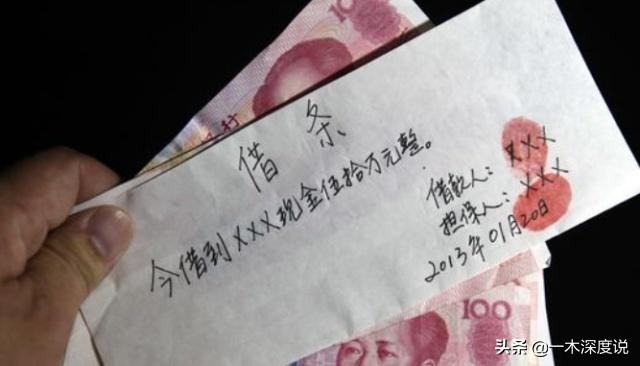 借条
今借到XXX现金伍拾万元整。
借款人：XXX
担保人：XXX
2013年01月20日
100
10
行
100
头条 @一木深度说